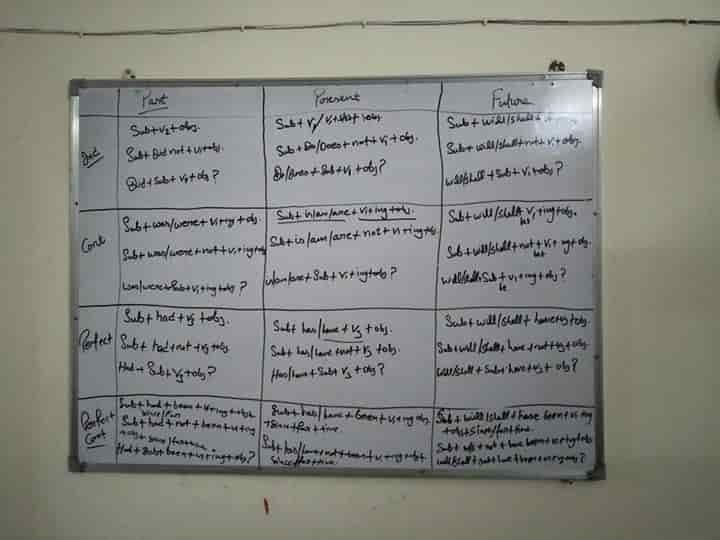 Past Present Future
Ind
Sub + V2 + obj.
Sub + Did not + V1 + obj.
Did + Sub + V1 + obj ?
Sub + V1/ V1+s/es + obj
Sub + Do/Does + not + V1 + obj.
Do/Does + Sub + V1 + obj ?
Sub + will/shall +
Sub + will/shall + not + V1 + obj.
will/shall + Sub + V1 + obj ?
Cont
Sub + was/were + V1 + ing + obj.
Sub + was/were + not + V1 + ing + obj
was/were + Sub + V1 + ing + obj ?
Sub + is/am/are + V1 + ing + obj.
Sub + is/am/are + not + V1 + ing + obj.
is/am/are + Sub + V1 + ing + obj ?
Sub + will/shall + V1 + ing + obj.
be
Sub + will/shall + not + V1 + ing + obj.
be
will/shall + Sub + V1 + ing + obj ?
be
Perfect
Sub + had + V3 + obj.
Sub + had + not + V3 + obj
Had + Sub + V3 + obj ?
Sub + has/have + V3 + obj.
Sub + has/have + not + V3 + obj.
Has/have + Sub + V3 + obj ?
Sub + will/shall + have + V3 + obj.
Sub + will/shall + have + not + V3 + obj
will/shall + Sub + have + V3 + obj ?
Perfect
Cont
Sub + had + been + V1 + ing + obj +
since/for
Sub + had + not + been + V1 + ing
+ obj + since/for + time
Had + Sub + been + V1 + ing + obj ?
Sub + has/have + been + V1 + ing obj
+ Since + for + time.
Sub + has/have + not + been + V1 + ing + obj +
since/for + time.
Sub + will/shall + have been + V1 + ing
+ obj + Since/for + time.
Sub + + not + have been + V1 + ing + obj
will/shall + sub + have + been + V1 + ing + obj ?